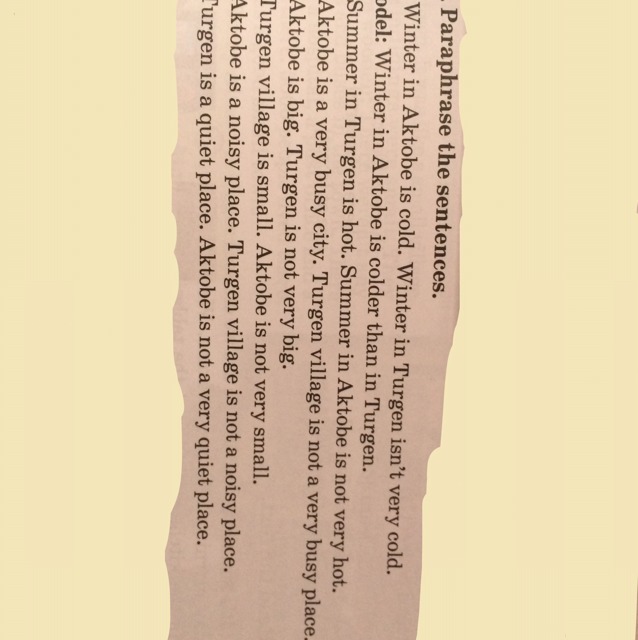 . Paraphrase the sentences.
Winter in Aktobe is cold. Winter in Turgen isn't very cold.
odel: Winter in Aktobe is colder than in Turgen.
Summer in Turgen is hot. Summer in Aktobe is not very hot.
Aktobe is a very busy city. Turgen village is not a very busy place.
Aktobe is big. Turgen is not very big.
Turgen village is small. Aktobe is not very small.
Aktobe is a noisy place. Turgen village is not a noisy place.
Turgen is a quiet place. Aktobe is not a very quiet place.